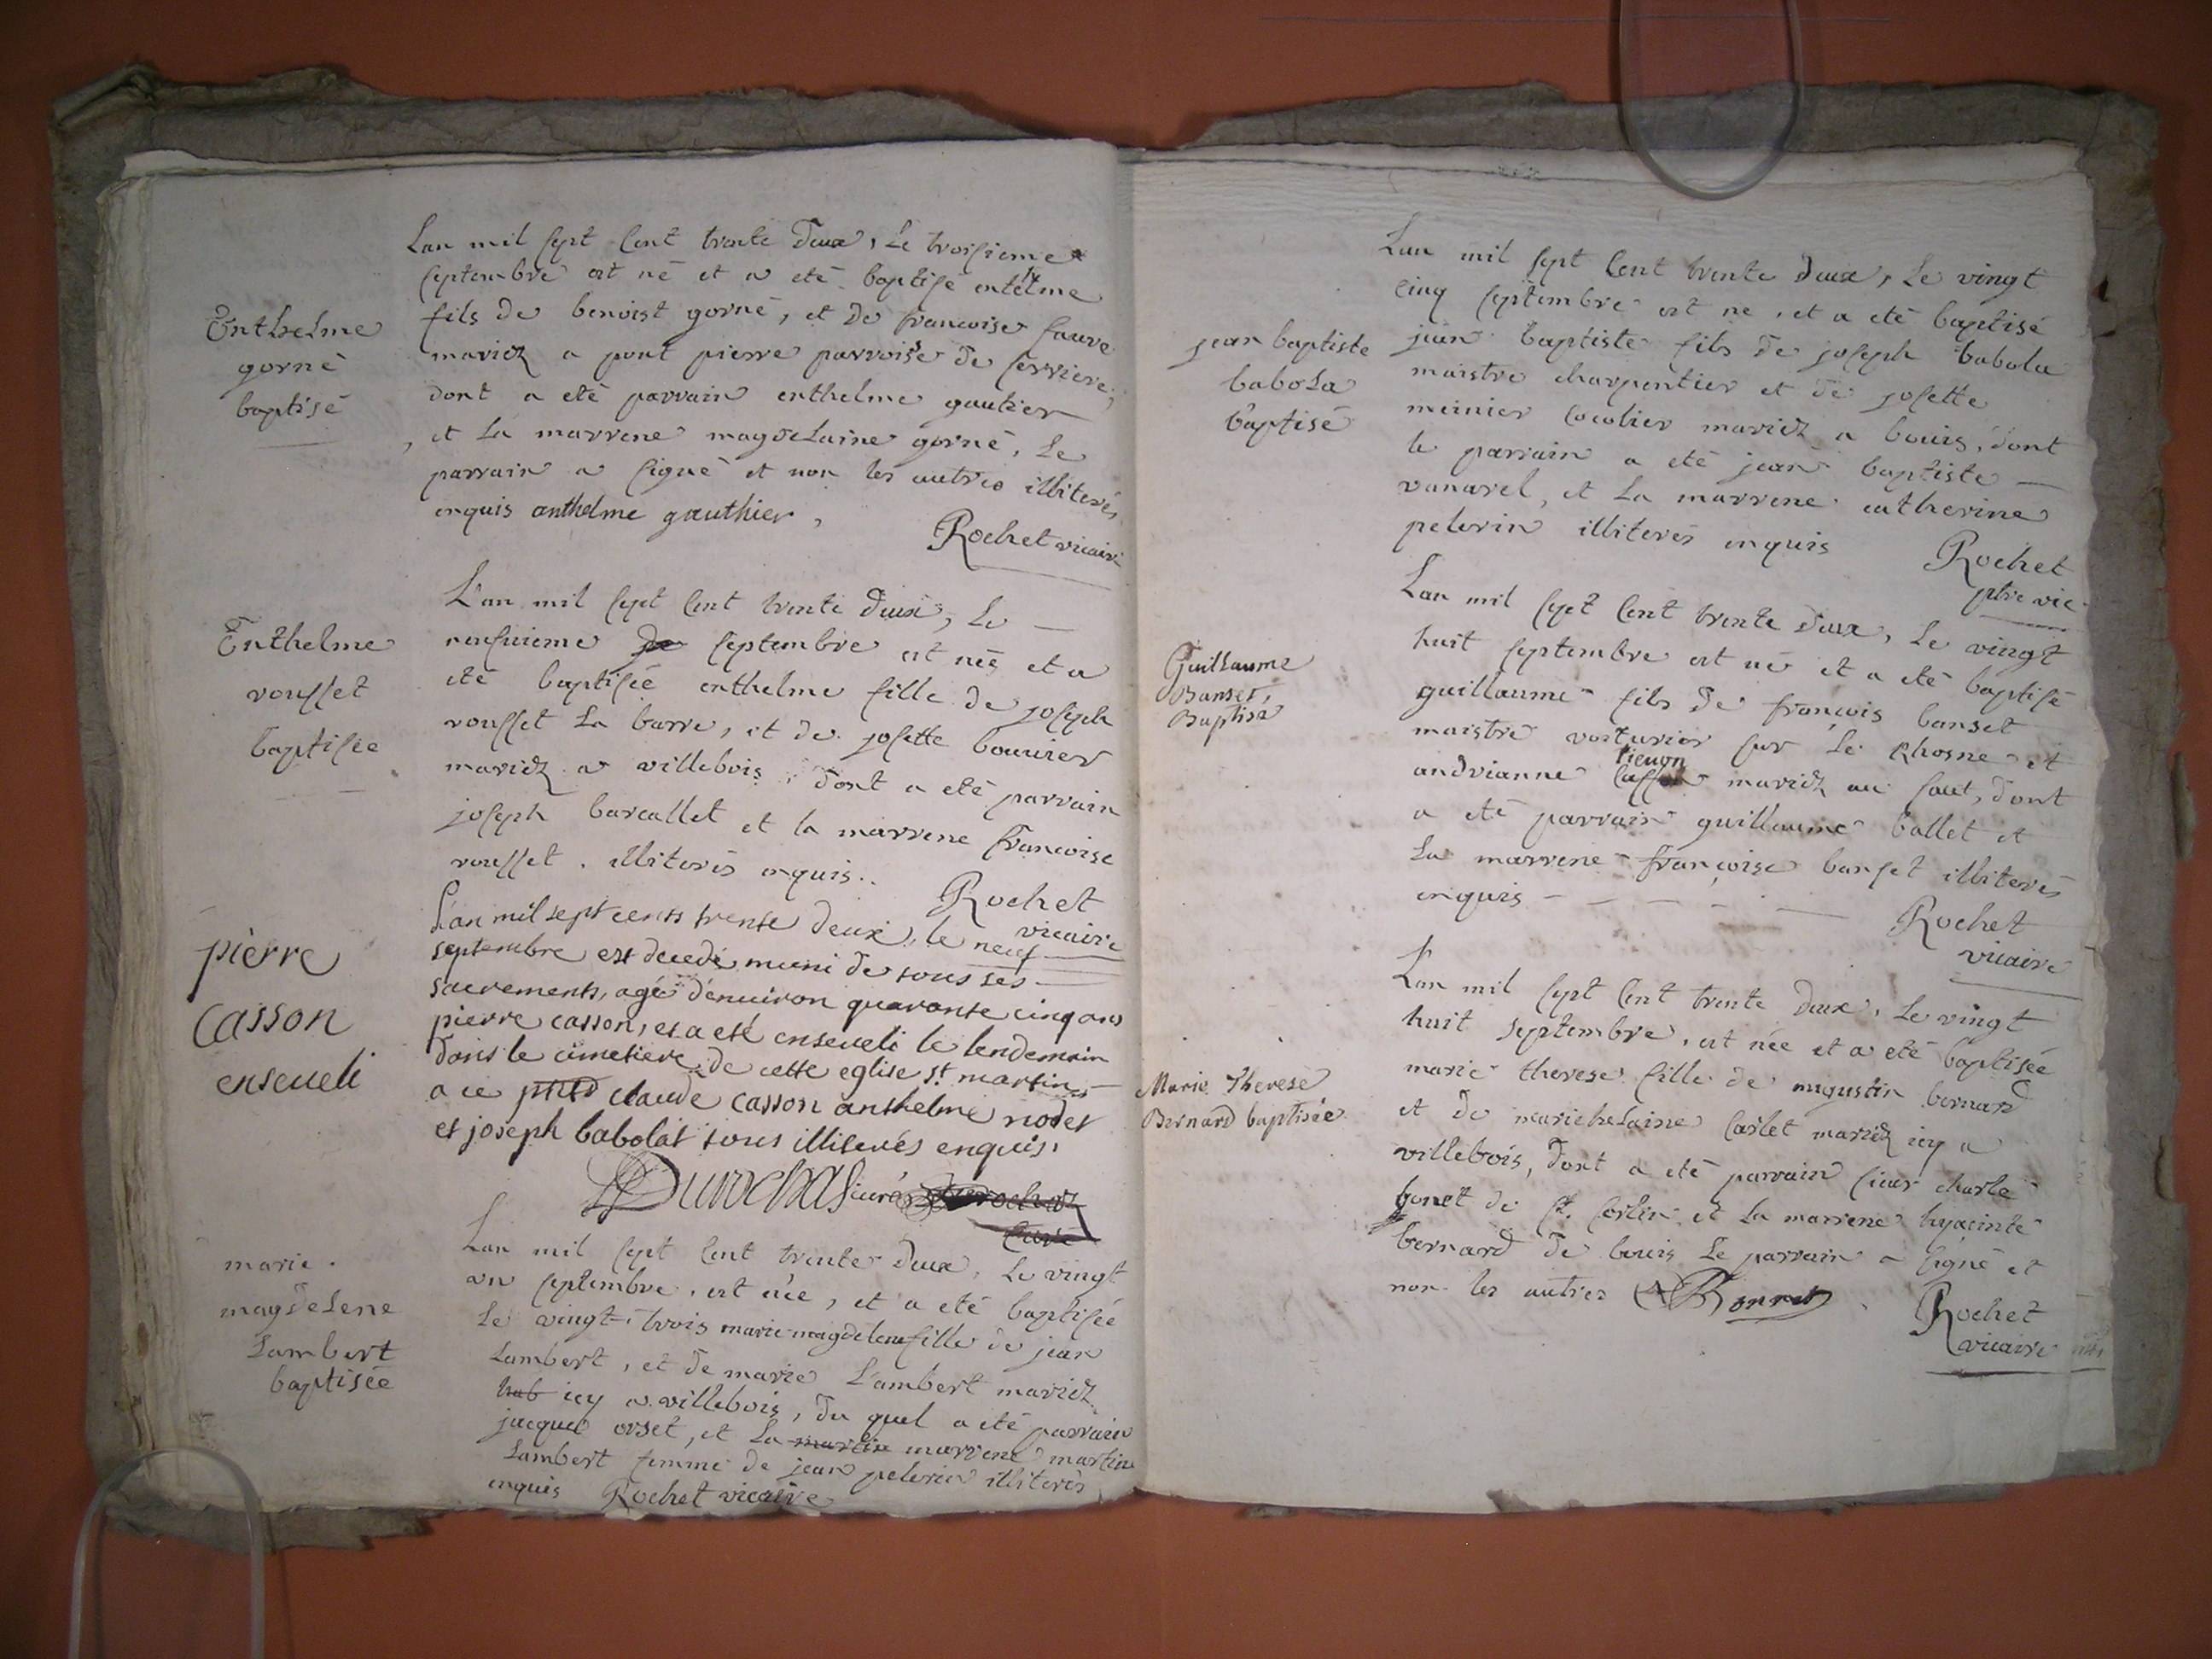 Enthelme
gorné
baptisé
Lan mil sept cent trente deux, Le troisieme
septembre est né et a eté baptisé entelme
fils de benoist gorné, et de francoise faure
mariez a pont pierre parroisse de serriere,
dont a eté parrain enthelme gautier
, et La marrene magdelaine gorné, Le
parrain a signé et non les autres illiterés
enquis anthelme gauthier,
Rochet vicaire
Enthelme
rousset
baptisée
L'an mil sept cent trente deux, Le
septembre est née et a
eté baptisée enthelme fille de joseph
rousset La barre, et de josette bouvier
mariez a villebois, dont a eté parrain
joseph barcallet et la marrene francoise
rousset. illiterés enquis..
Rochet
vicaire
pierre
casson
enseveli
L'an mil sept cents trente deux, le neuf
septembre est decedé muni de tous ses
sacrements, agé d'enuiron quarante cinq ans
pierre casson, et a esté enseveli le lendemain
dans le cimetiere de cette eglise st martin
a ce claude casson anthelme nodet
et joseph babolat tous illiterés enquis.
Durochat curé
curé
marie.
magdelene
Lambert
baptisée
Lan mil sept cent trente deux, Le vingt
un septembre, est née, et a eté baptisée
Le vingt-trois marie magdelene fille de jean
Lambert, et de marie L'ambert mariez
hab icy a villebois, du quel a eté parrain
jacques orset, et La martine marrene martine
Lambert femme de jean pelerin illiterés
enquis Rochet vicaire
jean baptiste
babola
baptisé
Lan mil sept cent trente deux, Le vingt
cinq septembre est né, et a eté baptisé
jean baptiste fils de joseph babola
maistre charpentier et de josette
meinier cocolier mariez a bouis, dont
le parrain a eté jean baptiste
vanarel, et La marrene catherine
pelerin illiterés enquis
Rochet
ptre vic
Guillaume
Banset,
Baptisé
Lan mil sept cent trente deux, Le vingt
huit septembre est né et a eté baptisé
guillaume fils de francois banset
maistre voiturier sur Le Rhosne et
andrianne mariez au saut, dont
a eté parrain guillaume ballet et
La marrene françoise banset illiterés
enquis
Rochet
vicaire
Marie Therese
Bernard baptisée
L'an mil sept cent trente deux, Le vingt
huit septembre, est née et a eté baptisée
marie therese fille de augustin bernard
et de marichelaine carlet mariez icy a
villebois, dont a eté parrain sieur charle
bonet de st. sorlin et La marrene hyacinte
bernard de bouis Le parrain a signé et
non les autres Bonnet
Rochet
vicaire